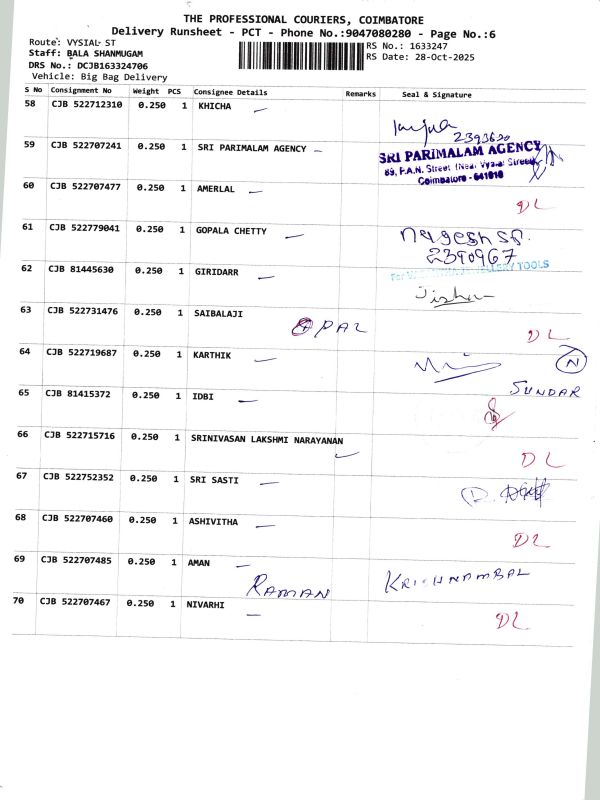 THE PROFESSIONAL COURIERS, COIMBATORE
Delivery Runsheet - PCT - Phone No.:9047080280 - Page No.:6
Route: VYSIAL ST
RS No.: 1633247
Staff: BALA SHANMUGAM
RS Date: 28-Oct-2025
DRS No.: DCJB163324706
Vehicle: Big Bag Delivery
S No Consignment No Weight PCS Consignee Details Remarks Seal & Signature
58 CJB 522712310 0.250 1 KHICHA
2393620
59 CJB 522707241 0.250 1 SRI PARIMALAM AGENCY
SRI PARIMALAM AGENCY
89, P.A.N. Street (Near Vysial Street)
Coimbatore - 641010
60 CJB 522707477 0.250 1 AMERLAL DL
61 CJB 522779041 0.250 1 GOPALA CHETTY
2390967
62 CJB 81445630 0.250 1 GIRIDARR
For JEWELLERY TOOLS
63 CJB 522731476 0.250 1 SAIBALAJI
OPAL DL
64 CJB 522719687 0.250 1 KARTHIK N
SUNDAR
65 CJB 81415372 0.250 1 IDBI
66 CJB 522715716 0.250 1 SRINIVASAN LAKSHMI NARAYANAN DL
67 CJB 522752352 0.250 1 SRI SASTI
68 CJB 522707460 0.250 1 ASHIVITHA DL
69 CJB 522707485 0.250 1 AMAN
RAMAN KRISHNAMBAL
70 CJB 522707467 0.250 1 NIVARHI DL